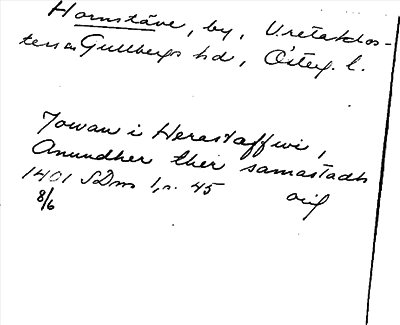 Hornstäve, by, Vretaklos-
ters o Gullbergs hd, Östeg. l.
Jowan i Herastaffwi,
Anundher ther samastadh
1401 SDns 1, s. 45 orig
8/6